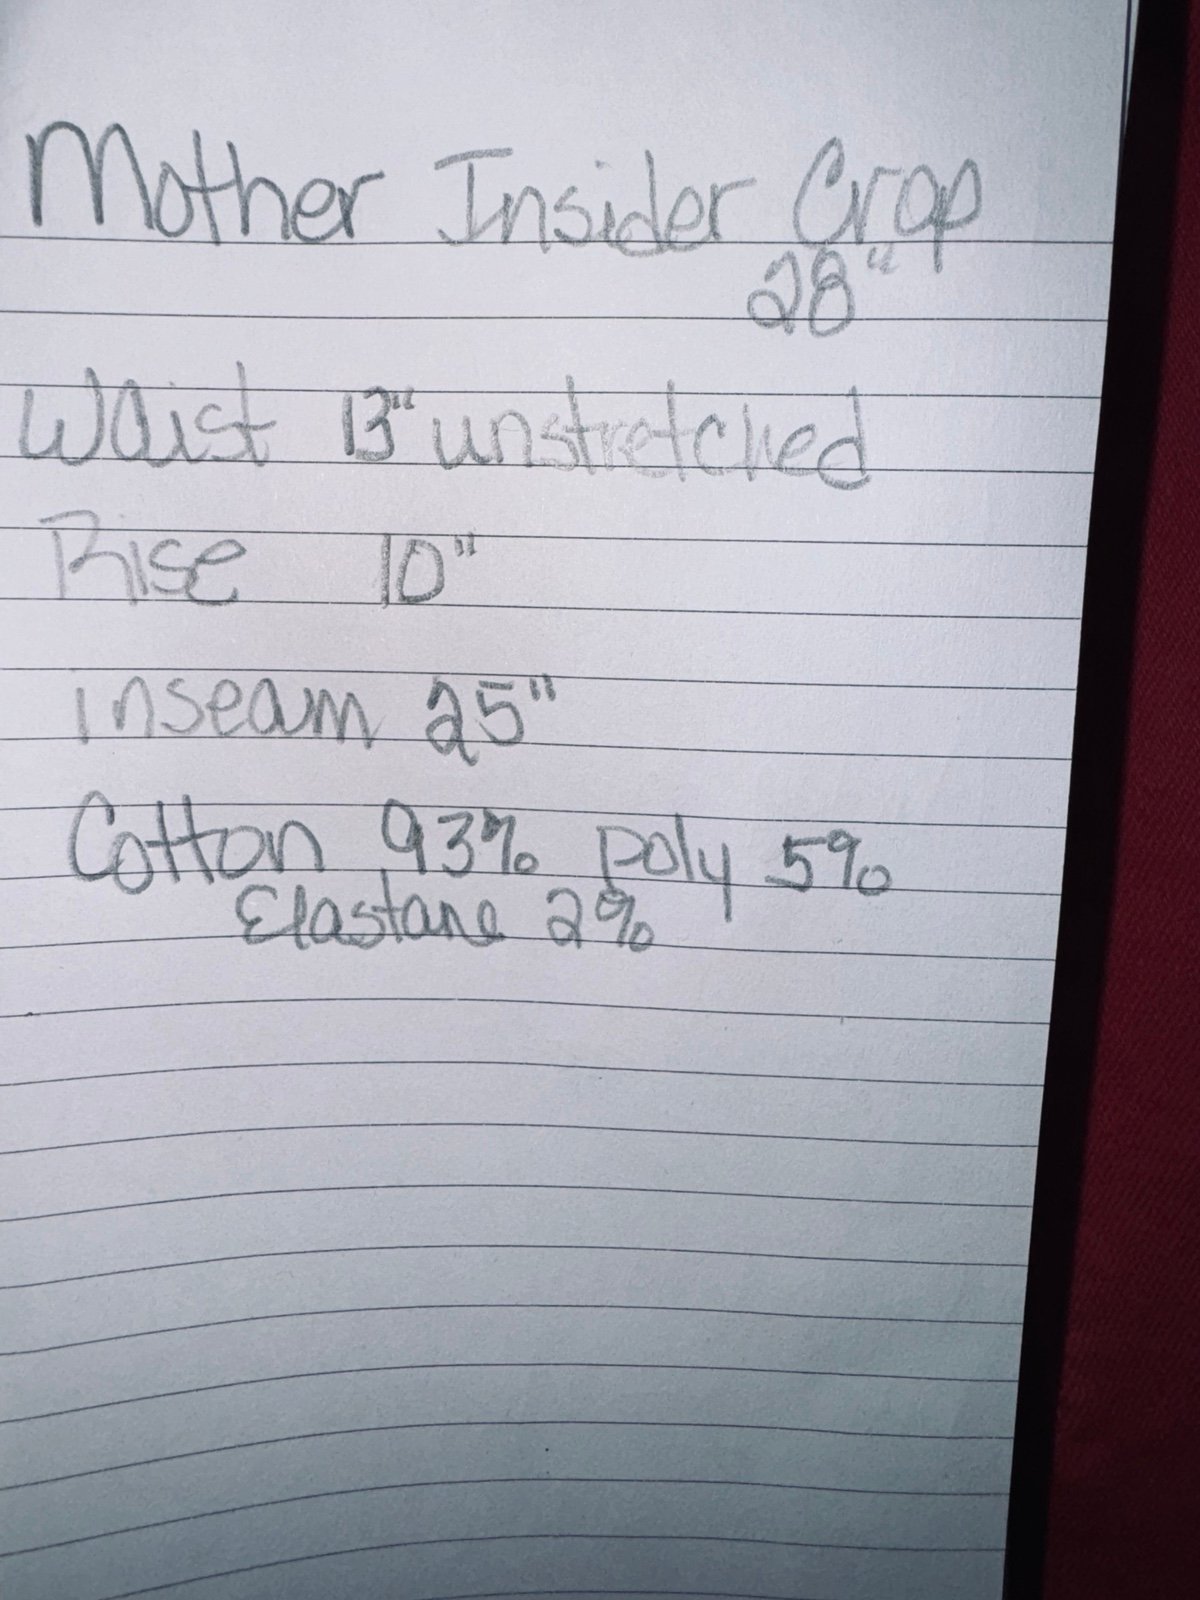 Mother Insider Crop
28"
Waist 13" unstretched
Rise 10"
inseam 25"
Cotton 93% poly 5%
Elastane 2%